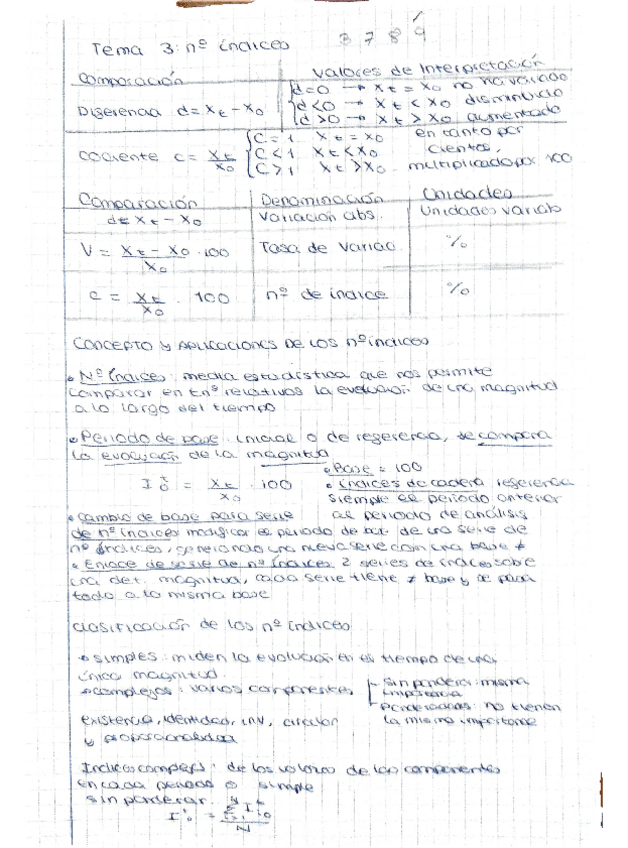 Tema 3: nº índices 3 7 8 9
Comparación Valores de Interpretación
Diferencia d = Xt - X0 d=0 → Xt = X0 no ha variado
d<0 → Xt < X0 disminuido
d>0 → Xt > X0 aumentado
cociente c = Xt/X0 C = 1 Xt = X0 en tanto por
C < 1 Xt < X0 cientos,
C > 1 Xt > X0 multiplicado por 100
Comparación Denominación Unidades
d = Xt - X0 Variación abs. Unidades variab
V = Xt - X0/X0 · 100 Tasa de variac. %
c = Xt/X0 · 100 nº de índice %
CONCEPTO y APLICACIONES DE LOS nº índices
• Nº índice: media estadística que nos permite
comparar en tnº relativos la evolución de una magnitud
a lo largo del tiempo
• Periodo de base: inicial o de referencia, se compara
la evolución de la magnitud
• Base = 100
I t0 = Xt/X0 · 100 • índices de cadena referencia
siempre el periodo anterior
• cambio de base para serie al periodo de análisis
de nº índices modificar el periodo de base de una serie de
nº índices, generando una nueva serie con una base ≠
• Enlace de serie de nº índices: 2 series de índices sobre
una det. magnitud, cada serie tiene ≠ base y se pasa
todo a la misma base
clasificación de los nº índices
• simples: miden la evolución en el tiempo de una
única magnitud.
• complejos: varios componentes sin ponderar: misma
importancia
ponderados: no tienen
la misma importancia
existencia, identidad, inv, circular
y proporcionalidad
Indices complejos: de los valores de los componentes
en cada periodo simple
sin ponderar.
I t0 = Σ I t0 / N